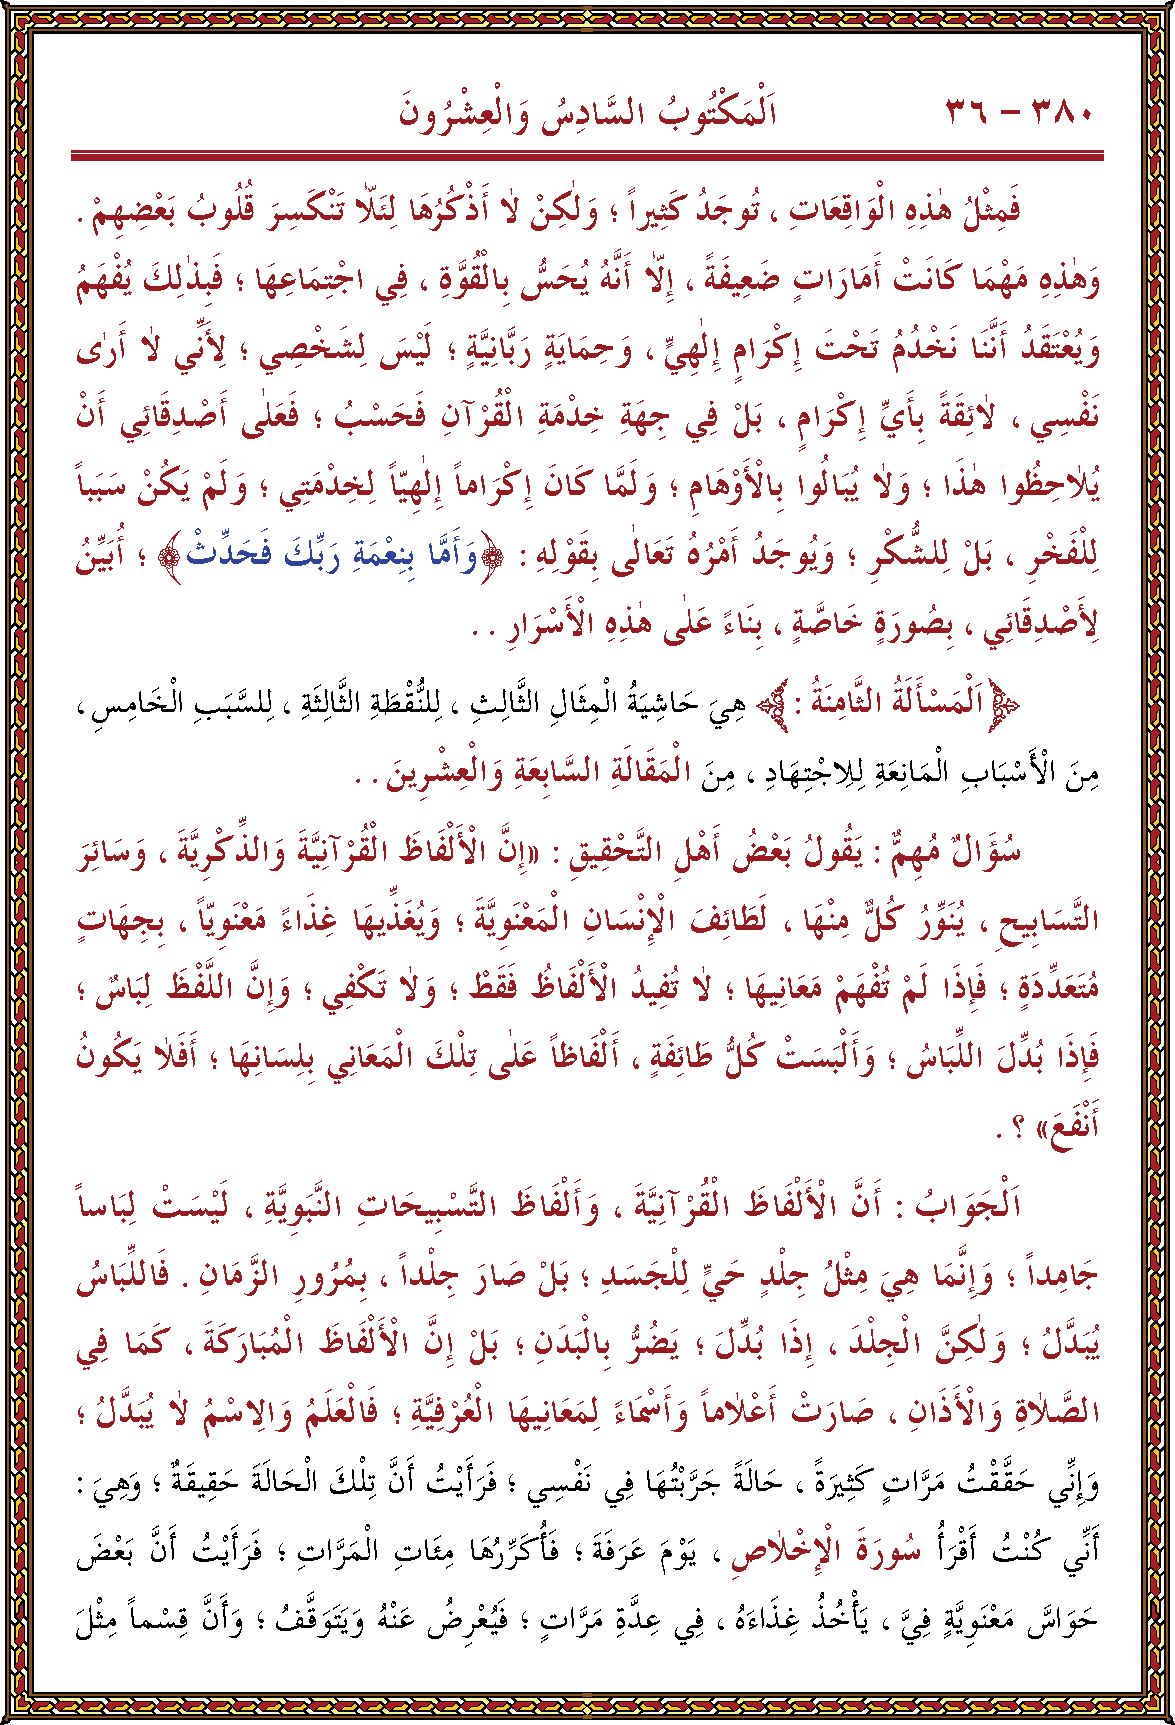 ٣٨٠ – ٣٦ اَلْمَكْتُوبُ السَّادِسُ وَالْعِشْرُونَ
فَمِثْلُ هٰذِهِ الْوَاقِعَاتِ ، تُوجَدُ كَثِيراً ؛ وَلٰكِنْ لَا أَذْكُرُهَا لِئَلَّا تَنْكَسِرَ قُلُوبُ بَعْضِهِمْ .
وَهٰذِهِ مَهْمَا كَانَتْ أَمَارَاتٍ ضَعِيفَةً ، إِلَّا أَنَّهُ يُحَسُّ بِالْقُوَّةِ ، فِي اجْتِمَاعِهَا ؛ فَبِذٰلِكَ يُفْهَمُ
وَيُعْتَقَدُ أَنَّنَا نَخْدُمُ تَحْتَ إِكْرَامٍ إِلٰهِيٍّ ، وَحِمَايَةٍ رَبَّانِيَّةٍ ؛ لَيْسَ لِشَخْصِي ؛ لِأَنِّي لَا أَرٰى
نَفْسِي ، لَائِقَةً بِأَيِّ إِكْرَامٍ ، بَلْ فِي جِهَةِ خِدْمَةِ الْقُرْآنِ فَحَسْبُ ؛ فَعَلٰى أَصْدِقَائِي أَنْ
يُلَاحِظُوا هٰذَا ؛ وَلَا يُبَالُوا بِالْأَوْهَامِ ؛ وَلَمَّا كَانَ إِكْرَاماً إِلٰهِيّاً لِخِدْمَتِي ؛ وَلَمْ يَكُنْ سَبَباً
لِلْفَخْرِ ، بَلْ لِلشُّكْرِ ؛ وَيُوجَدُ أَمْرُهُ تَعَالٰى بِقَوْلِهِ : ﴿وَأَمَّا بِنِعْمَةِ رَبِّكَ فَحَدِّثْ﴾ ؛ أُبَيِّنُ
لِأَصْدِقَائِي ، بِصُورَةٍ خَاصَّةٍ ، بِنَاءً عَلٰى هٰذِهِ الْأَسْرَارِ . .
﴿اَلْمَسْأَلَةُ الثَّامِنَةُ : ﴾ هِيَ حَاشِيَةُ الْمِثَالِ الثَّالِثِ ، لِلنُّقْطَةِ الثَّالِثَةِ ، لِلسَّبَبِ الْخَامِسِ ،
مِنَ الْأَسْبَابِ الْمَانِعَةِ لِلِاجْتِهَادِ ، مِنَ الْمَقَالَةِ السَّابِعَةِ وَالْعِشْرِينَ . .
سُؤَالٌ مُهِمٌّ : يَقُولُ بَعْضُ أَهْلِ التَّحْقِيقِ : «إِنَّ الْأَلْفَاظَ الْقُرْآنِيَّةَ وَالذِّكْرِيَّةَ ، وَسَائِرَ
التَّسَابِيحِ ، يُنَوِّرُ كُلٌّ مِنْهَا ، لَطَائِفَ الْإِنْسَانِ الْمَعْنَوِيَّةَ ؛ وَيُغَذِّيهَا غِذَاءً مَعْنَوِيّاً ، بِجِهَاتٍ
مُتَعَدِّدَةٍ ؛ فَإِذَا لَمْ تُفْهَمْ مَعَانِيهَا ؛ لَا تُفِيدُ الْأَلْفَاظُ فَقَطْ ؛ وَلَا تَكْفِي ؛ وَإِنَّ اللَّفْظَ لِبَاسٌ ؛
فَإِذَا بُدِّلَ اللِّبَاسُ ؛ وَأَلْبَسَتْ كُلُّ طَائِفَةٍ ، أَلْفَاظاً عَلٰى تِلْكَ الْمَعَانِي بِلِسَانِهَا ؛ أَفَلَا يَكُونُ
أَنْفَعَ» ؟ .
اَلْجَوَابُ : أَنَّ الْأَلْفَاظَ الْقُرْآنِيَّةَ ، وَأَلْفَاظَ التَّسْبِيحَاتِ النَّبَوِيَّةِ ، لَيْسَتْ لِبَاساً
جَامِداً ؛ وَإِنَّمَا هِيَ مِثْلُ جِلْدٍ حَيٍّ لِلْجَسَدِ ؛ بَلْ صَارَ جِلْداً ، بِمُرُورِ الزَّمَانِ . فَاللِّبَاسُ
يُبَدَّلُ ؛ وَلٰكِنَّ الْجِلْدَ ، إِذَا بُدِّلَ ؛ يَضُرُّ بِالْبَدَنِ ؛ بَلْ إِنَّ الْأَلْفَاظَ الْمُبَارَكَةَ ، كَمَا فِي
الصَّلَاةِ وَالْأَذَانِ ، صَارَتْ أَعْلَاماً وَأَسْمَاءً لِمَعَانِيهَا الْعُرْفِيَّةِ ؛ فَالْعَلَمُ وَالِاسْمُ لَا يُبَدَّلُ ؛
وَإِنِّي حَقَّقْتُ مَرَّاتٍ كَثِيرَةً ، حَالَةً جَرَّبْتُهَا فِي نَفْسِي ؛ فَرَأَيْتُ أَنَّ تِلْكَ الْحَالَةَ حَقِيقَةٌ ؛ وَهِيَ :
أَنِّي كُنْتُ أَقْرَأُ سُورَةَ الْإِخْلَاصِ ، يَوْمَ عَرَفَةَ ؛ فَأُكَرِّرُهَا مِئَاتِ الْمَرَّاتِ ؛ فَرَأَيْتُ أَنَّ بَعْضَ
حَوَاسَّ مَعْنَوِيَّةٍ فِيَّ ، يَأْخُذُ غِذَاءَهُ ، فِي عِدَّةِ مَرَّاتٍ ؛ فَيُعْرِضُ عَنْهُ وَيَتَوَقَّفُ ؛ وَأَنَّ قِسْماً مِثْلَ